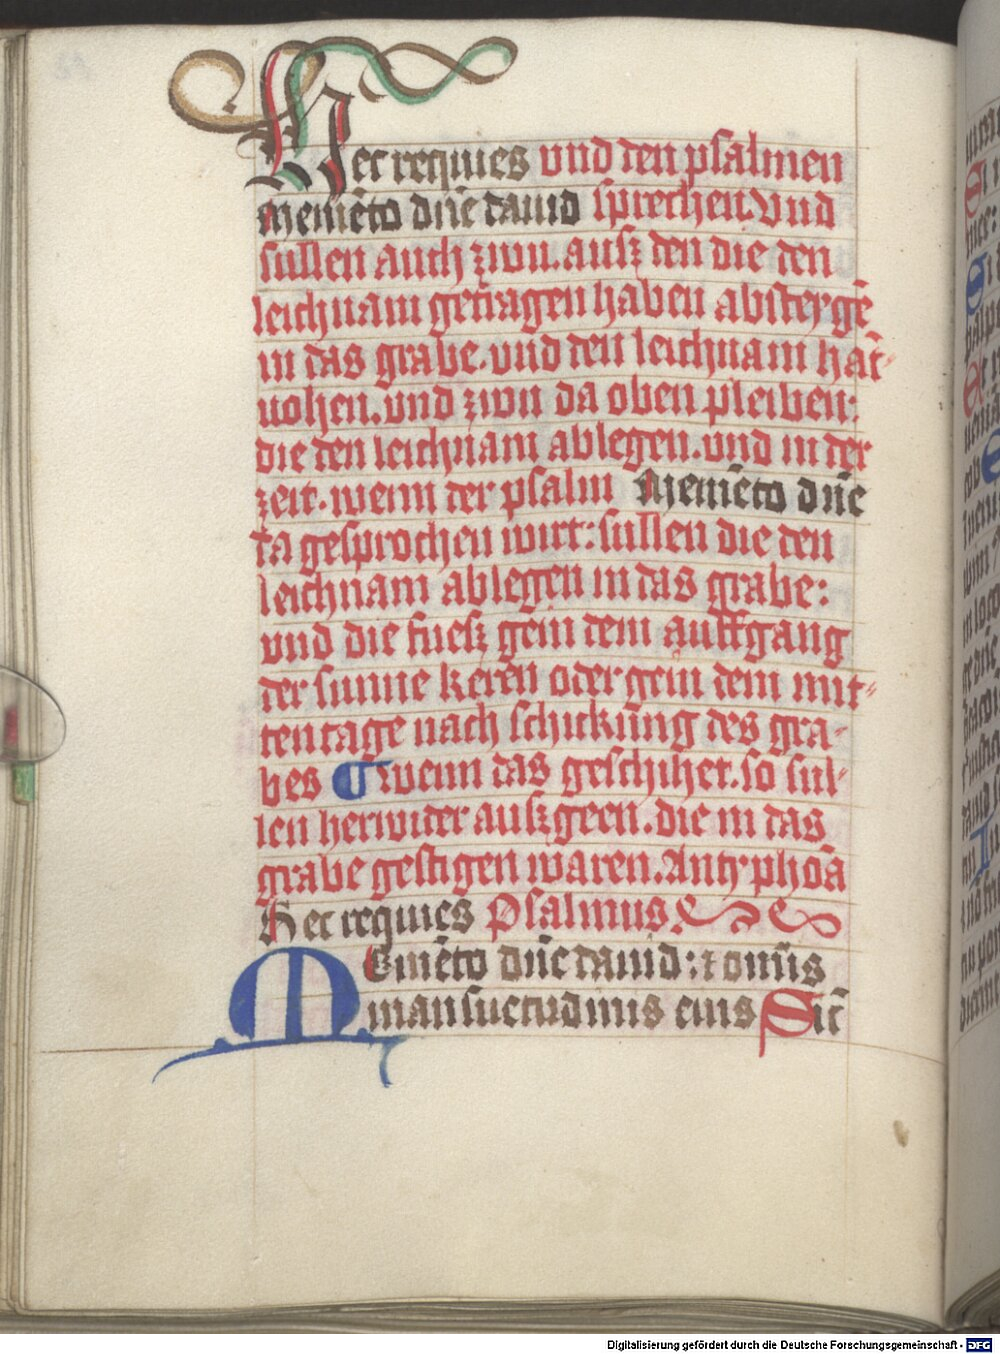 Hec requies vnd den psalmen
Memēto dn̄e dauid sprechen. Vnd
sullen auch zwu. ausz den die den
leichnam getragen haben absteygē
in das grabe. vnd den leichnam hat
nohen. vnd zwu da oben pleiben:
die den leichnam ablegen. vnd in der
zeit. wenn der psalm Memēto dn̄e
da gesprochen wirt: sullen die den
leichnam ablegen in das grabe:
vnd die fuesz gein dem auffgang
der sunne keren oder gein dem mit-
tentage nach schickung des gra-
bes wenn das geschihet. so sul-
len herwider auszgeen. die in das
grabe gestigen waren. Antyphoā
Hec requies Psalmus.
MEmēto dn̄e dauid: et omīs
mansuetudinis eius Sic̄
Digitalisierung gefördert durch die Deutsche Forschungsgemeinschaft - DFG